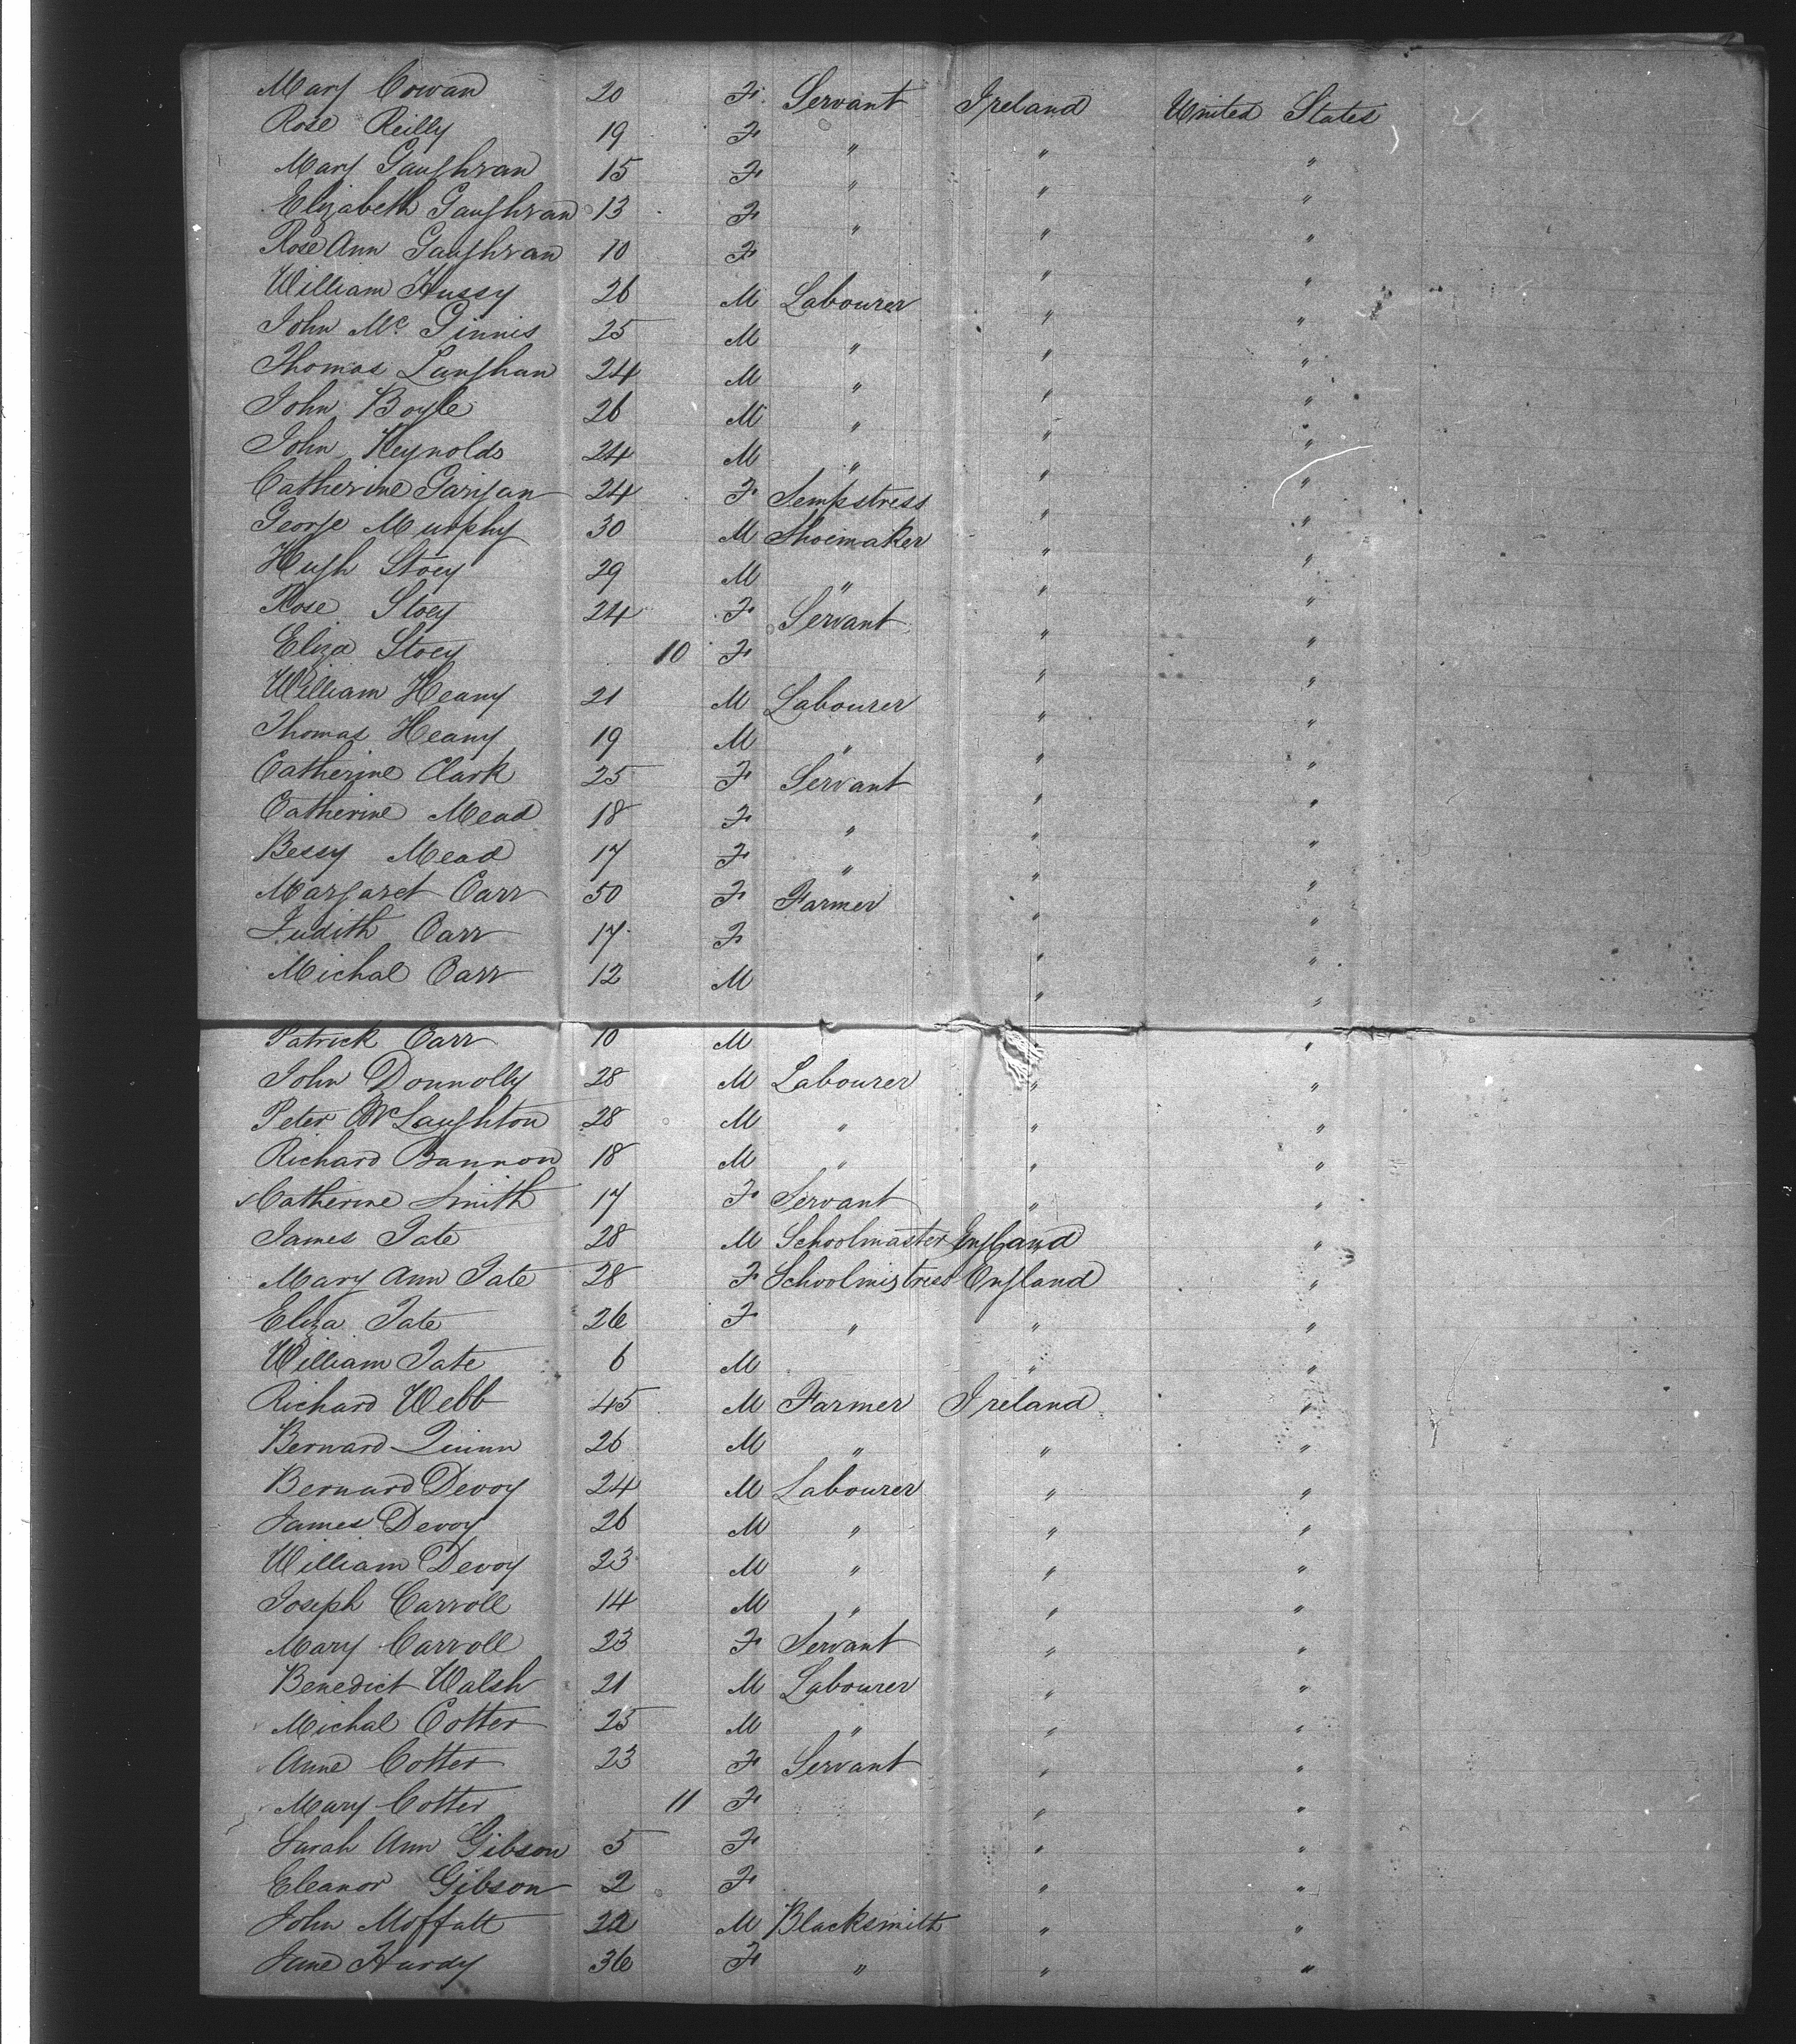 Mary Cowan 20 F. Servant Ireland United States
Rose Reilly 19 F " " "
Mary Gaughran 15 F " " "
Elizabeth Gaughran 13 F " " "
Rose Ann Gaughran 10 F " "
William Hussy 26 M Labourer " "
John Mc Ginnis 25 M " " "
Thomas Langhan 24 M " " "
John Boyle 26 M " " "
John Reynolds 24 M " " "
Catherine Garigan 24 F Sempstress " "
George Murphy 30 M Shoemaker " "
Hugh Stoey 29 M " " "
Rose Stoey 24 F Servant " "
Eliza Stoey 10 F " "
William Heany 21 M Labourer " "
Thomas Heany 19 M " " "
Catherine Clark 25 F Servant " "
Catherine Mead 18 F " " "
Bessy Mead 17 F " " "
Margaret Carr 50 F Farmer " "
Judith Carr 17 F " "
Michal Carr 12 M " "
Patrick Carr 10 M "
John Donnolly 28 M Labourer " "
Peter McLaughton 28 M " " "
Richard Bannon 18 M " " "
Catherine Smith 17 F Servant " "
James Tate 28 M Schoolmaster England "
Mary Ann Tate 28 F Schoolmistress England "
Eliza Tate 26 F " " "
William Tate 6 M " "
Richard Webb 45 M Farmer Ireland "
Bernard Quinn 26 M " " "
Bernard Devoy 24 M Labourer " "
James Devoy 26 M " " "
William Devoy 23 M " " "
Joseph Carroll 14 M " " "
Mary Carroll 23 F Servant " "
Benedict Walsh 21 M Labourer " "
Michal Cotter 25 M " " "
Anne Cotter 23 F Servant " "
Mary Cotter 11 F " "
Sarah Ann Gibson 5 F " "
Eleanor Gibson 2 F " "
John Moffatt 22 M Blacksmith " "
Jane Hardy 36 F " " "